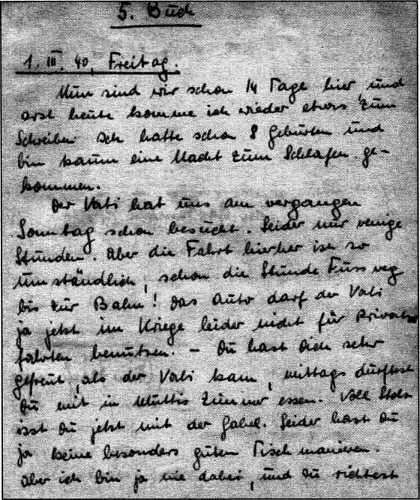 5. Buch
1. III. 40, Freitag.
Nun sind wir schon 14 Tage hier, und
erst heute komme ich wieder etwas zum
Schreiben. Ich hatte schon 8 Geburten und
bin kaum eine Nacht zum Schlafen ge-
kommen.
Der Vati hat uns am vergangen
Sonntag schon besucht. Leider nur wenige
Stunden. Aber die Fahrt hierher ist so
umständlich, schon die Stunde Fussweg
bis zur Bahn! Das Auto darf der Vati
ja jetzt im Kriege leider nicht für Privat-
fahrten benutzen. – Du hast Dich sehr
gefreut, als der Vati kam, mittags durftest
Du mit in Muttis Zimmer essen. Voll Stolz
isst Du jetzt mit der Gabel. Leider hast Du
ja keine besonders guten Tischmanieren.
Aber ich bin ja nie dabei, und Du richtest